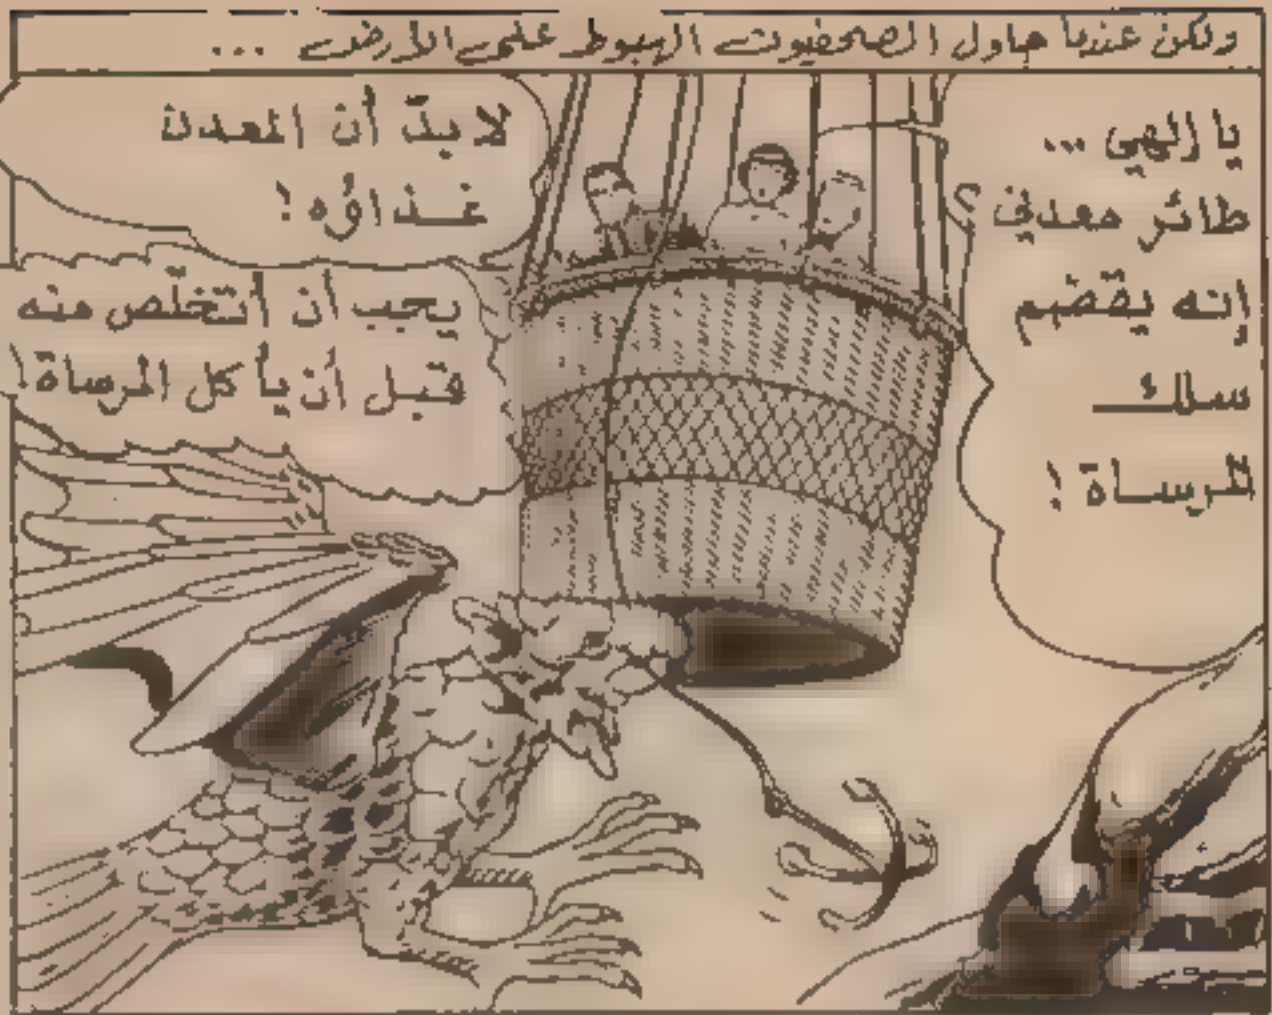 ولكن عندما حاول الصحفيون الهبوط على الأرض ...
يا إلهي ...
طائر معدني ؟
إنه يقضم
سلك
المرساة !
لا بدّ أن المعدن
غذاؤه !
يجب أن أتخلّص منه
قبل أن يأكل المرساة !